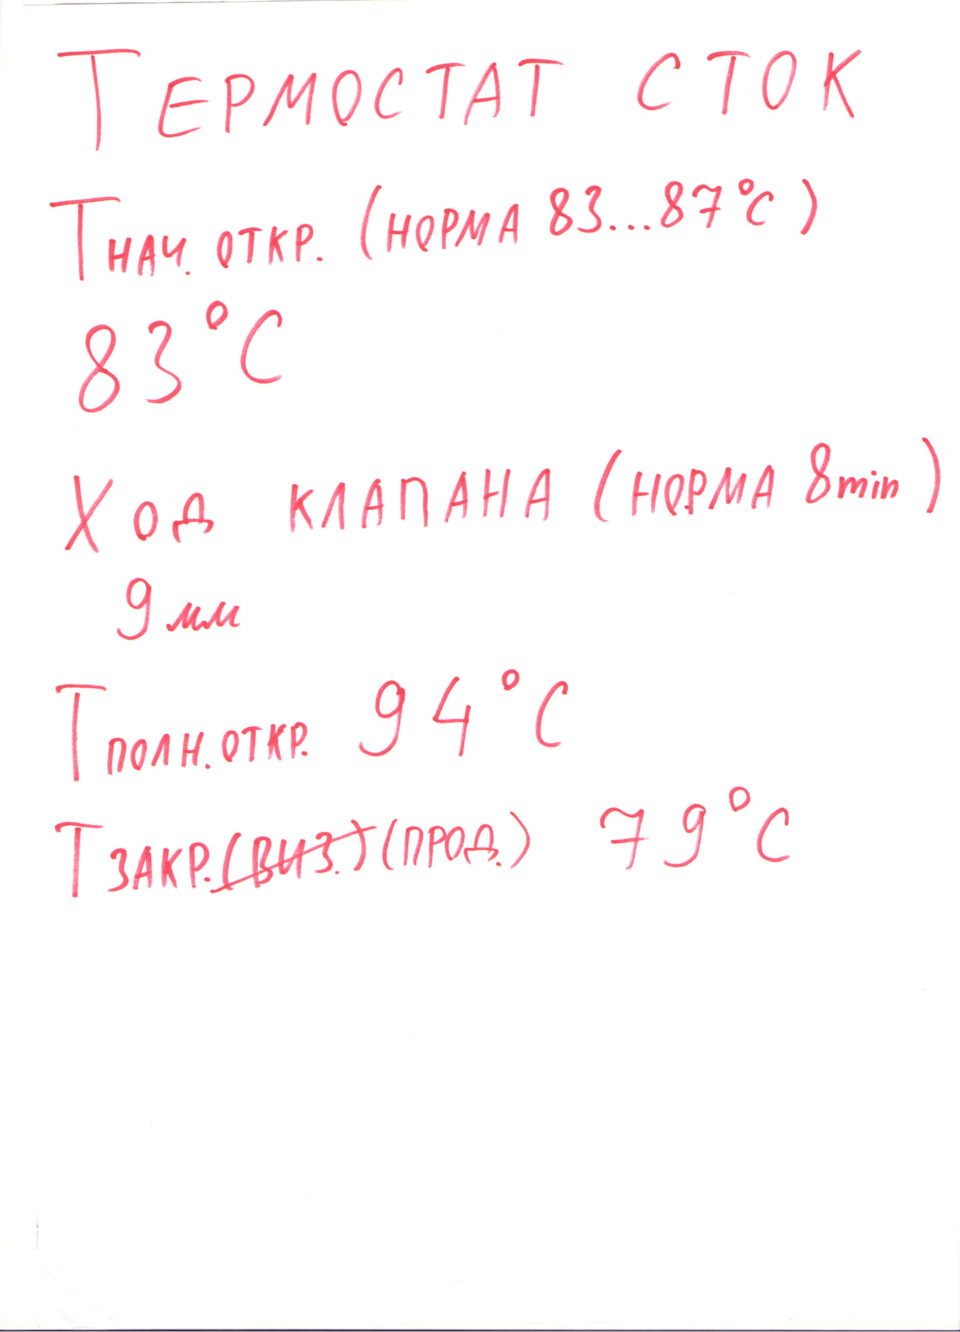 ТЕРМОСТАТ СТОК
Тнач. откр. (норма 83...87°C)
83°C
Ход клапана (норма 8min)
9мм
Тполн. откр. 94°C
Тзакр. (виз.) (прод.) 79°C